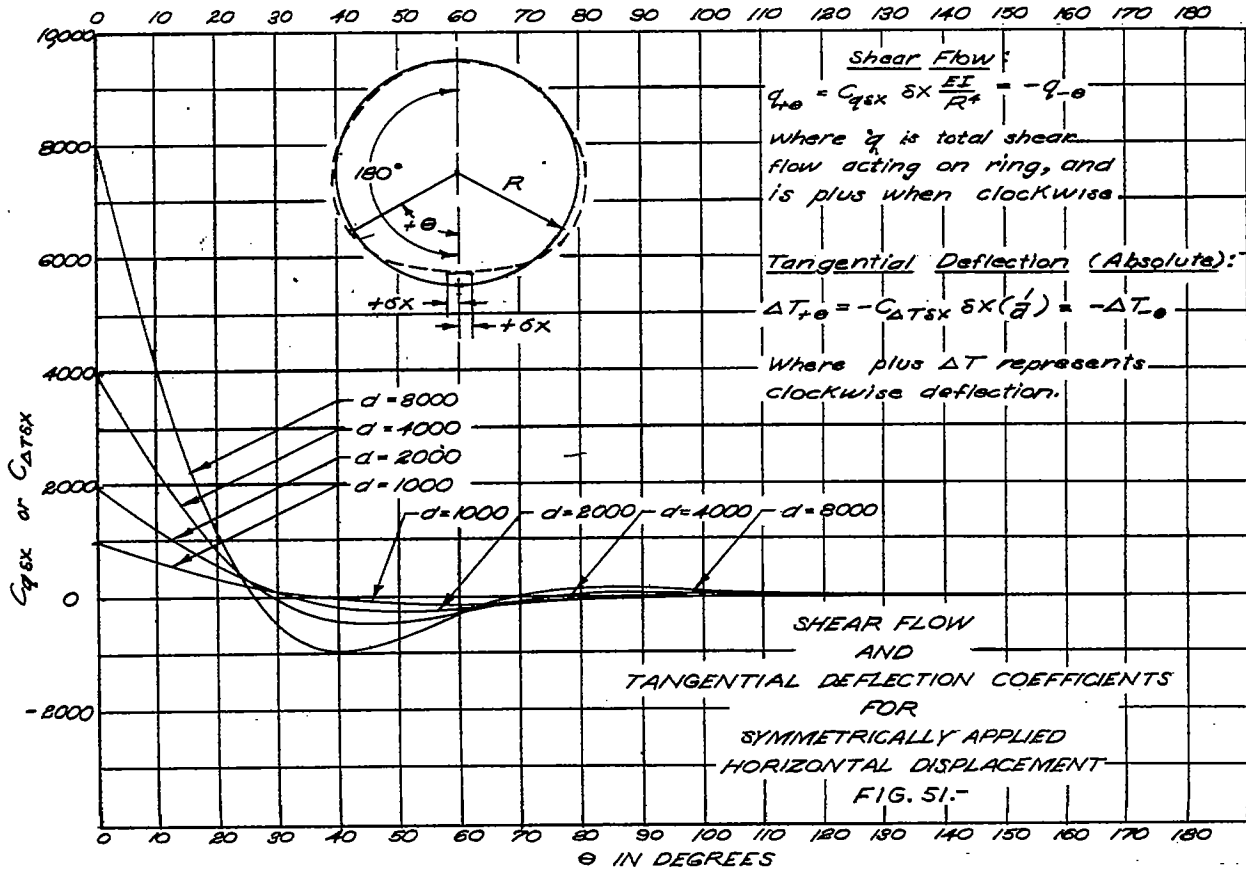 0 10 20 30 40 50 60 70 80 90 100 110 120 130 140 150 160 170 180
10000
8000
6000
4000
2000
0
-2000
C_qδx or C_ΔTδx
180°
R
+θ
+δx
+δx
Shear Flow:
q_+θ = C_qδx δx EI/R⁴ = -q_-θ
where q is total shear
flow acting on ring, and
is plus when clockwise.
Tangential Deflection (Absolute):
ΔT_+θ = -C_ΔTδx δx (1/d) = -ΔT_-θ
Where plus ΔT represents
clockwise deflection.
d=8000
d=4000
d=2000
d=1000
d=1000 d=2000 d=4000 d=8000
SHEAR FLOW
AND
TANGENTIAL DEFLECTION COEFFICIENTS
FOR
SYMMETRICALLY APPLIED
HORIZONTAL DISPLACEMENT
FIG. 51.-
0 10 20 30 40 50 60 70 80 90 100 110 120 130 140 150 160 170 180
θ IN DEGREES